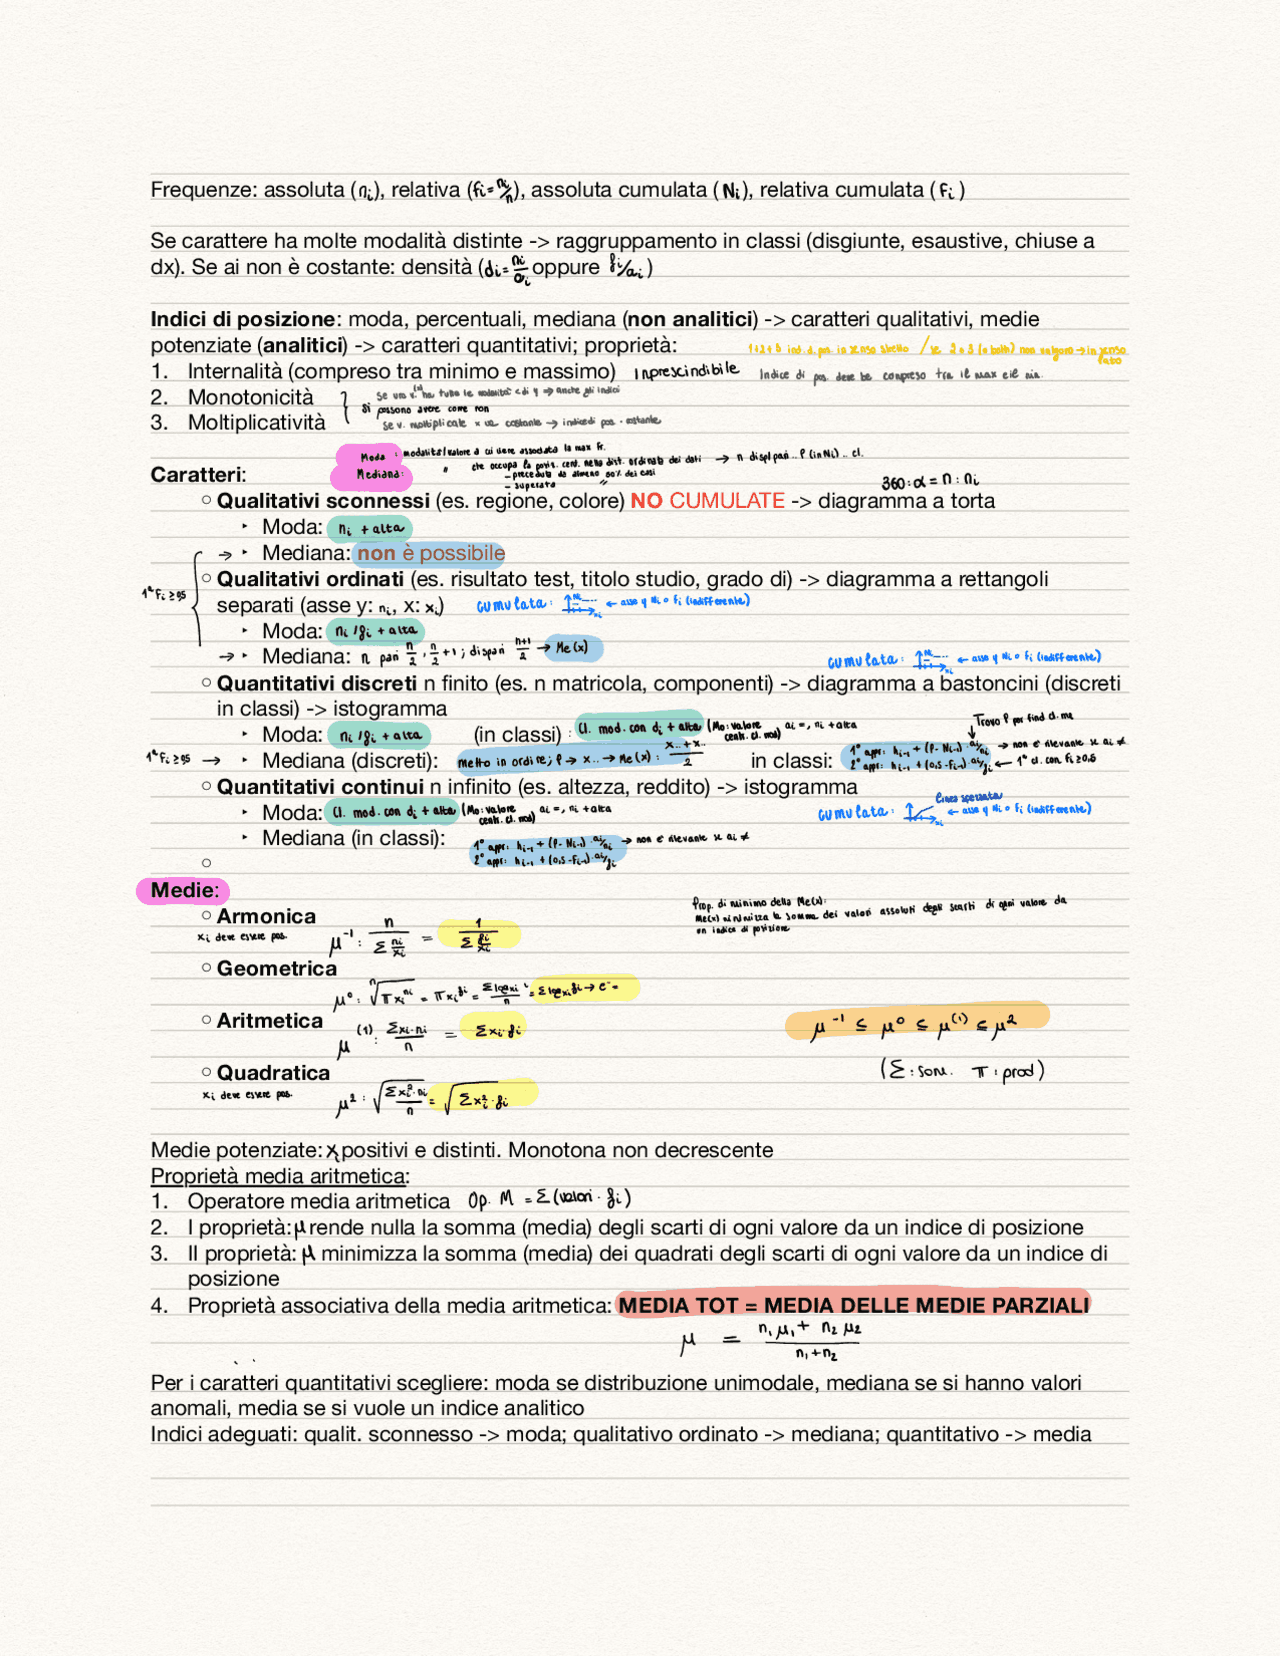 Frequenze: assoluta (ni), relativa (fi=ni/n), assoluta cumulata (Ni), relativa cumulata (Fi)
Se carattere ha molte modalità distinte -> raggruppamento in classi (disgiunte, esaustive, chiuse a
dx). Se ai non è costante: densità (di=ni/ai oppure fi/ai)
Indici di posizione: moda, percentuali, mediana (non analitici) -> caratteri qualitativi, medie
potenziate (analitici) -> caratteri quantitativi; proprietà:
1+2+3 ind. d. pos. in senso stretto / se 2 o 3 (o both) non valgono → in senso lato
1. Internalità (compreso tra minimo e massimo) Inprescindibile Indice di pos. deve be compreso tra il max e il min.
2. Monotonicità
3. Moltiplicatività
si possono avere come non
Se v. moltiplicate x una costante → indice di pos · costante
Moda: modalità/valore a cui viene associata la max fr.
Mediana: " che occupa la posiz. cent. nella dist. ordinata dei dati → n disp/pari.. P (in Ni) .. cl.
- preceduta da almeno 50% dei casi
- superata "
Caratteri:
360:α = n:ni
○ Qualitativi sconnessi (es. regione, colore) NO CUMULATE -> diagramma a torta
‣ Moda: ni + alta
→ ‣ Mediana: non è possibile
○ Qualitativi ordinati (es. risultato test, titolo studio, grado di) -> diagramma a rettangoli
1ª Fi ≥ 0,5
separati (asse y: ni, x: xi) cumulata: ← asse y Ni o Fi (indifferente)
‣ Moda: ni /fi + alta
→ ‣ Mediana: n pari n/2, n/2 +1; dispari n+1/2 → Me(x)
cumulata: ← asse y Ni o Fi (indifferente)
○ Quantitativi discreti n finito (es. n matricola, componenti) -> diagramma a bastoncini (discreti
in classi) -> istogramma
‣ Moda: ni /fi + alta (in classi): Cl. mod. con di + alta (Mo: valore centr. cl. mod) ai =, ni + alta
Trovo P per find cl. me
1ª Fi ≥ 0,5 → ‣ Mediana (discreti): metto in ordine; P → x.. → Me(x): x..+x../2 in classi: 1° appr: hi-1 + (P - Ni-1) · ai/ni → non è rilevante se ai ≠
2° appr: hi-1 + (0,5 - Fi-1) · ai/fi ← 1ª cl. con Fi ≥ 0,5
○ Quantitativi continui n infinito (es. altezza, reddito) -> istogramma
‣ Moda: Cl. mod. con di + alta (Mo: valore centr. cl. mod) ai =, ni + alta
linea spezzata
cumulata: ← asse y Ni o Fi (indifferente)
‣ Mediana (in classi): 1° appr: hi-1 + (P - Ni-1) · ai/ni → non è rilevante se ai ≠
2° appr: hi-1 + (0,5 - Fi-1) · ai/fi
○
Medie:
Prop. di minimo della Me(x):
Me(x) minimizza la somma dei valori assoluti degli scarti di ogni valore da
un indice di posizione
○ Armonica
xi deve essere pos. μ⁻¹: n / Σ ni/xi = 1 / Σ fi/xi
○ Geometrica
μ⁰: ⁿ√π xi^ni = π xi^fi
○ Aritmetica μ⁽¹⁾: Σxi·ni / n = Σxi·fi
μ⁻¹ ≤ μ⁰ ≤ μ⁽¹⁾ ≤ μ²
○ Quadratica (Σ: som. π: prod)
xi deve essere pos. μ²: √Σxi²·ni / n = √Σxi²·fi
Medie potenziate: xi positivi e distinti. Monotona non decrescente
Proprietà media aritmetica:
1. Operatore media aritmetica Op. M = Σ(valori · fi)
2. I proprietà: μ rende nulla la somma (media) degli scarti di ogni valore da un indice di posizione
3. II proprietà: μ minimizza la somma (media) dei quadrati degli scarti di ogni valore da un indice di
posizione
4. Proprietà associativa della media aritmetica: MEDIA TOT = MEDIA DELLE MEDIE PARZIALI
μ = n₁μ₁ + n₂μ₂ / n₁+n₂
Per i caratteri quantitativi scegliere: moda se distribuzione unimodale, mediana se si hanno valori
anomali, media se si vuole un indice analitico
Indici adeguati: qualit. sconnesso -> moda; qualitativo ordinato -> mediana; quantitativo -> media